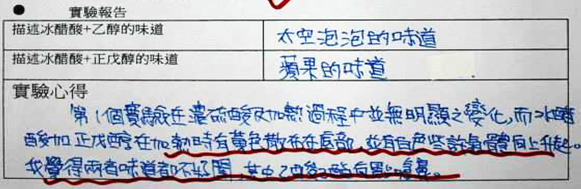 ● 實驗報告
描述冰醋酸+乙醇的味道 太空泡泡的味道
描述冰醋酸+正戊醇的味道 蘋果的味道
實驗心得
第1個實驗在濃硫酸及加熱過程中並無明顯之變化,而冰醋
酸加正戊醇在加熱時有黃色散布在底部,並有白色些許氣體向上升起。
我覺得兩者味道都不好聞,其中乙酸